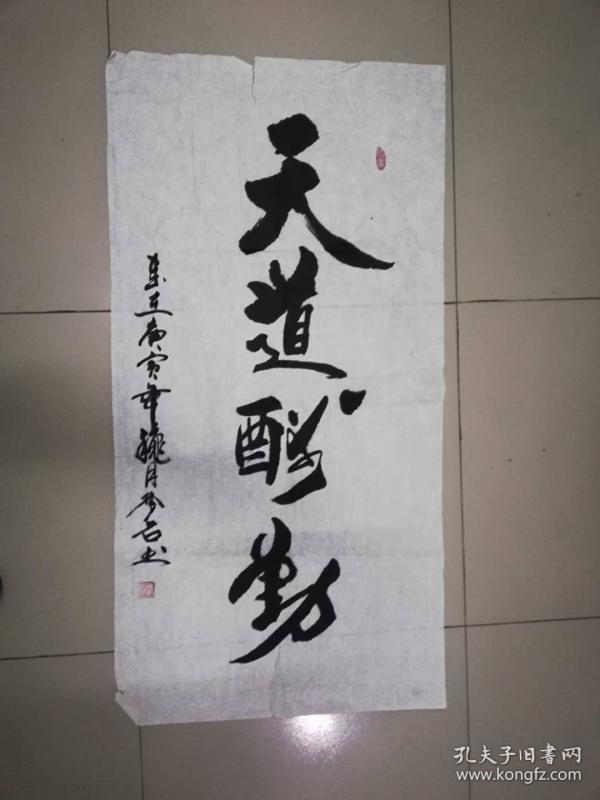 天道酬勤
庚寅年 月 石书
孔夫子旧书网
www.kongfz.com